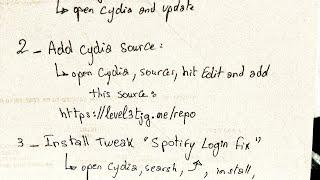 ↳ open Cydia and update
2 _ Add Cydia source:
↳ open Cydia, sources, hit Edit and add
this source:
https://level3tjg.me/repo
3 _ Install Tweak "Spotify Login fix"
↳ open Cydia, search, ⤴, install,